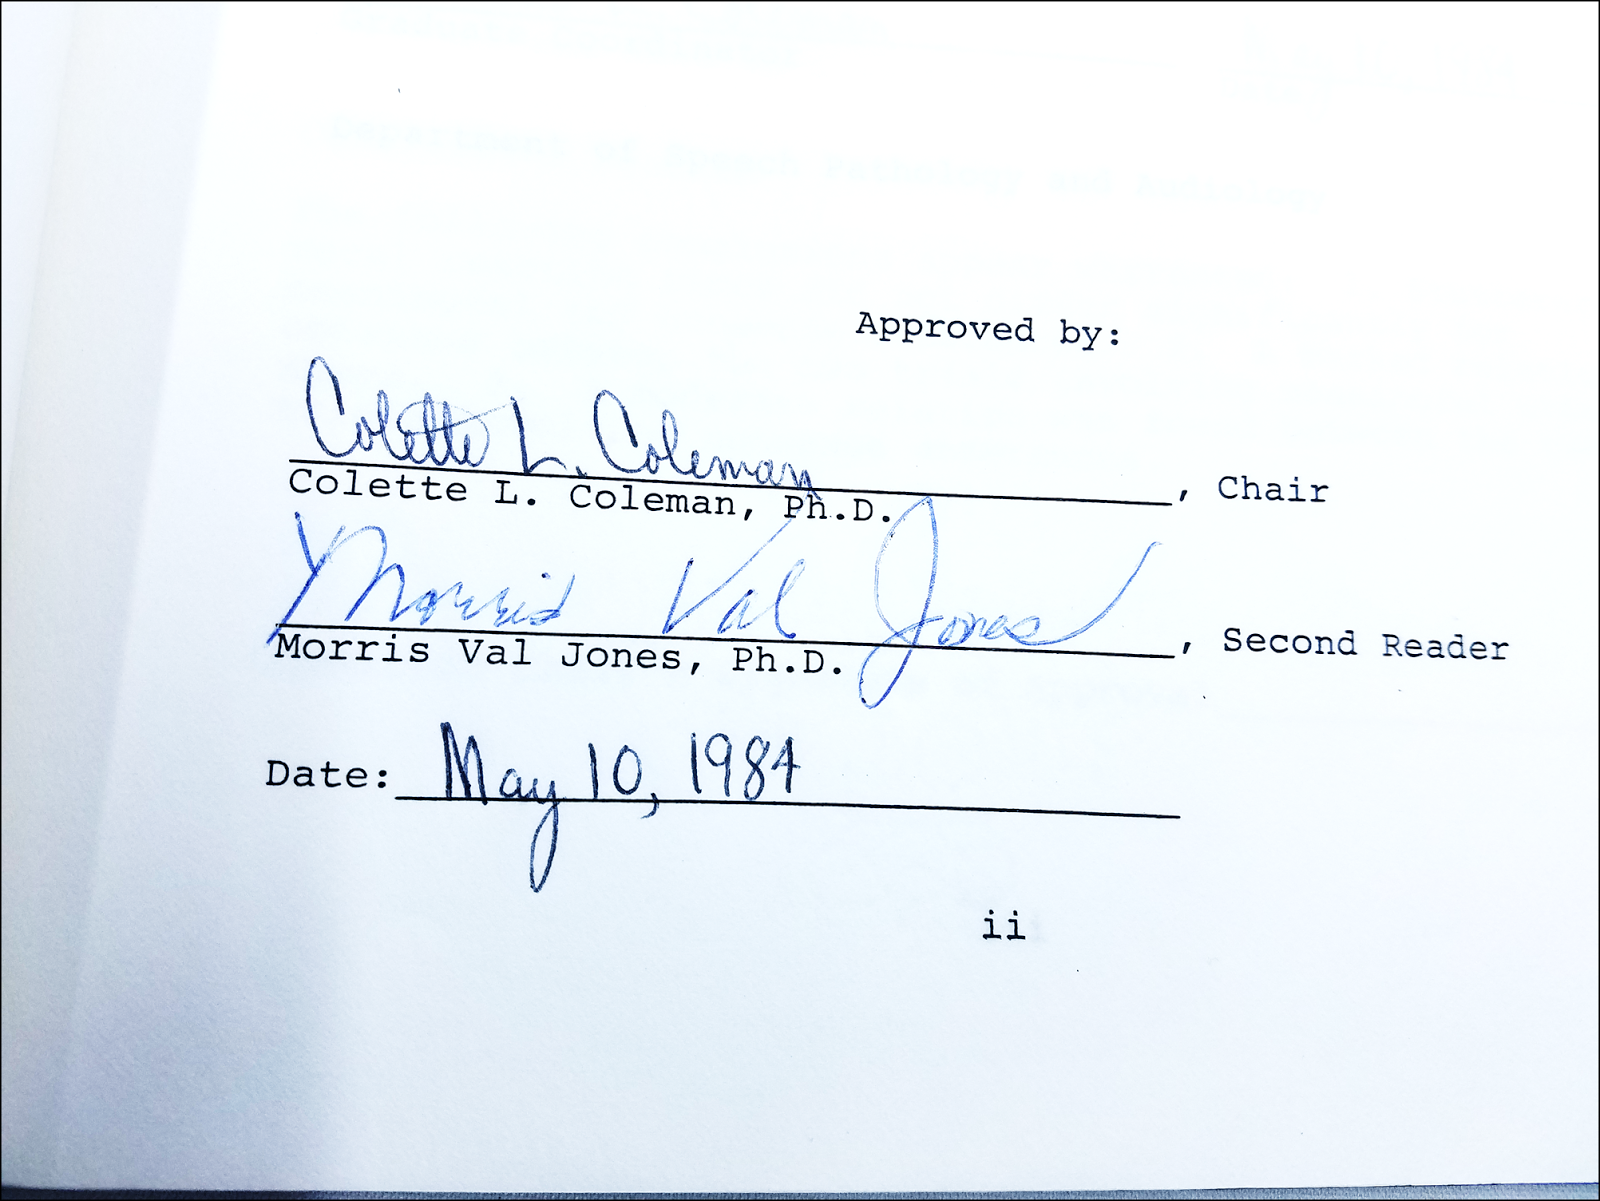 Approved by:
Colette L. Coleman
, Chair
Colette L. Coleman, Ph.D.
Morris Val Jones
, Second Reader
Morris Val Jones, Ph.D.
Date: May 10, 1984
ii